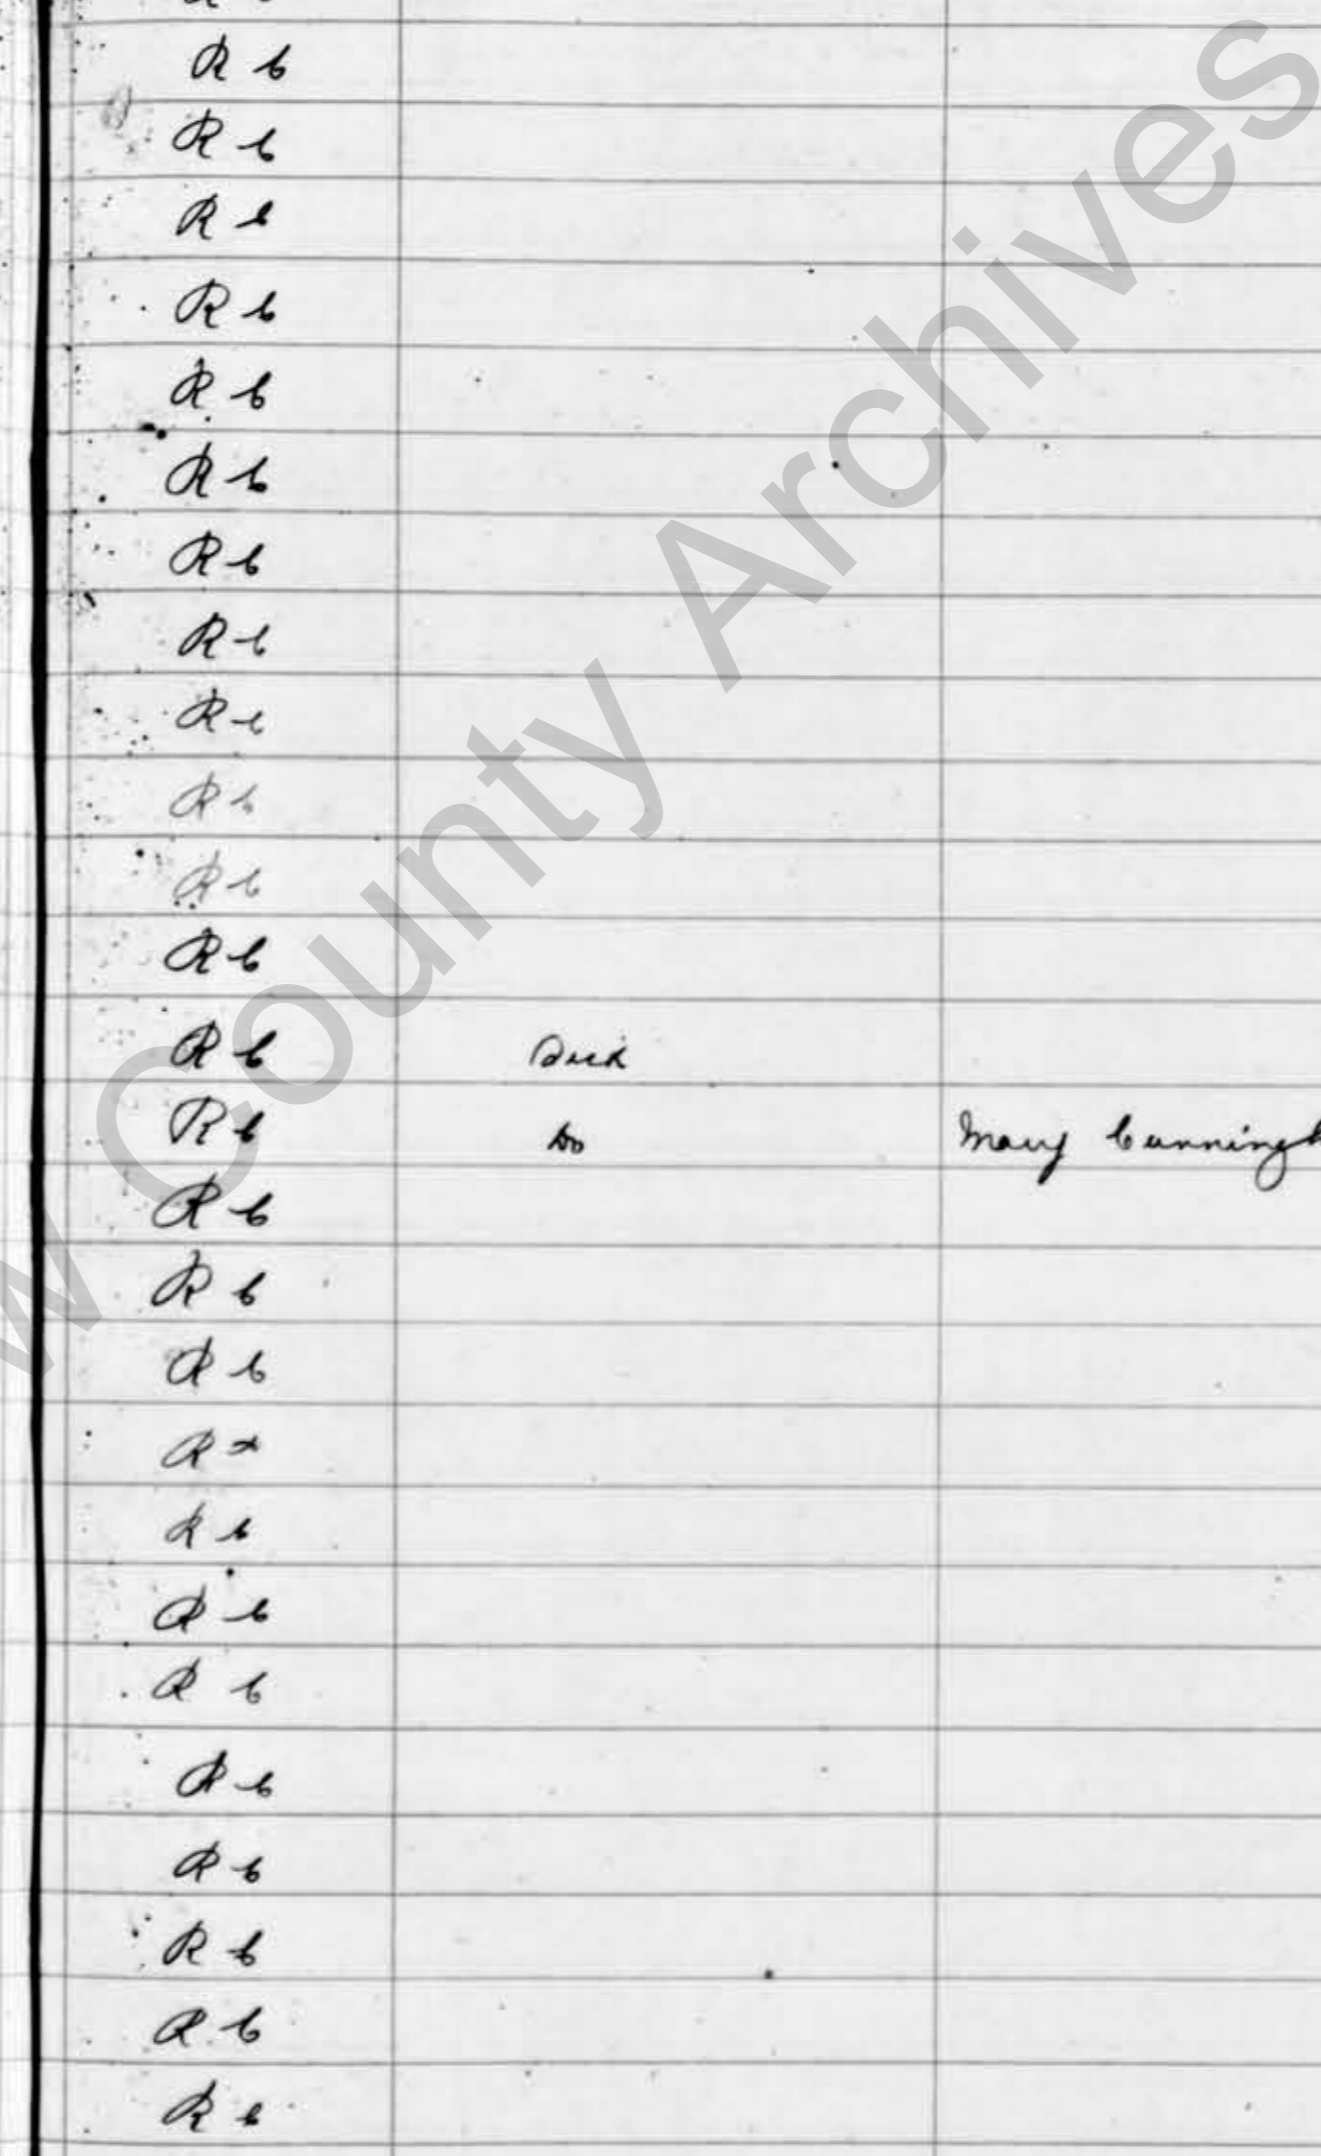 R C
R C
R C
R C
R C
R C
R C
R C
R C
R C
R C
R C
R C
R C Do Mary Cunningh
R C
R C
R C
R
R C
R C
R C
R C
R C
R C
R C
R C
w County Archives